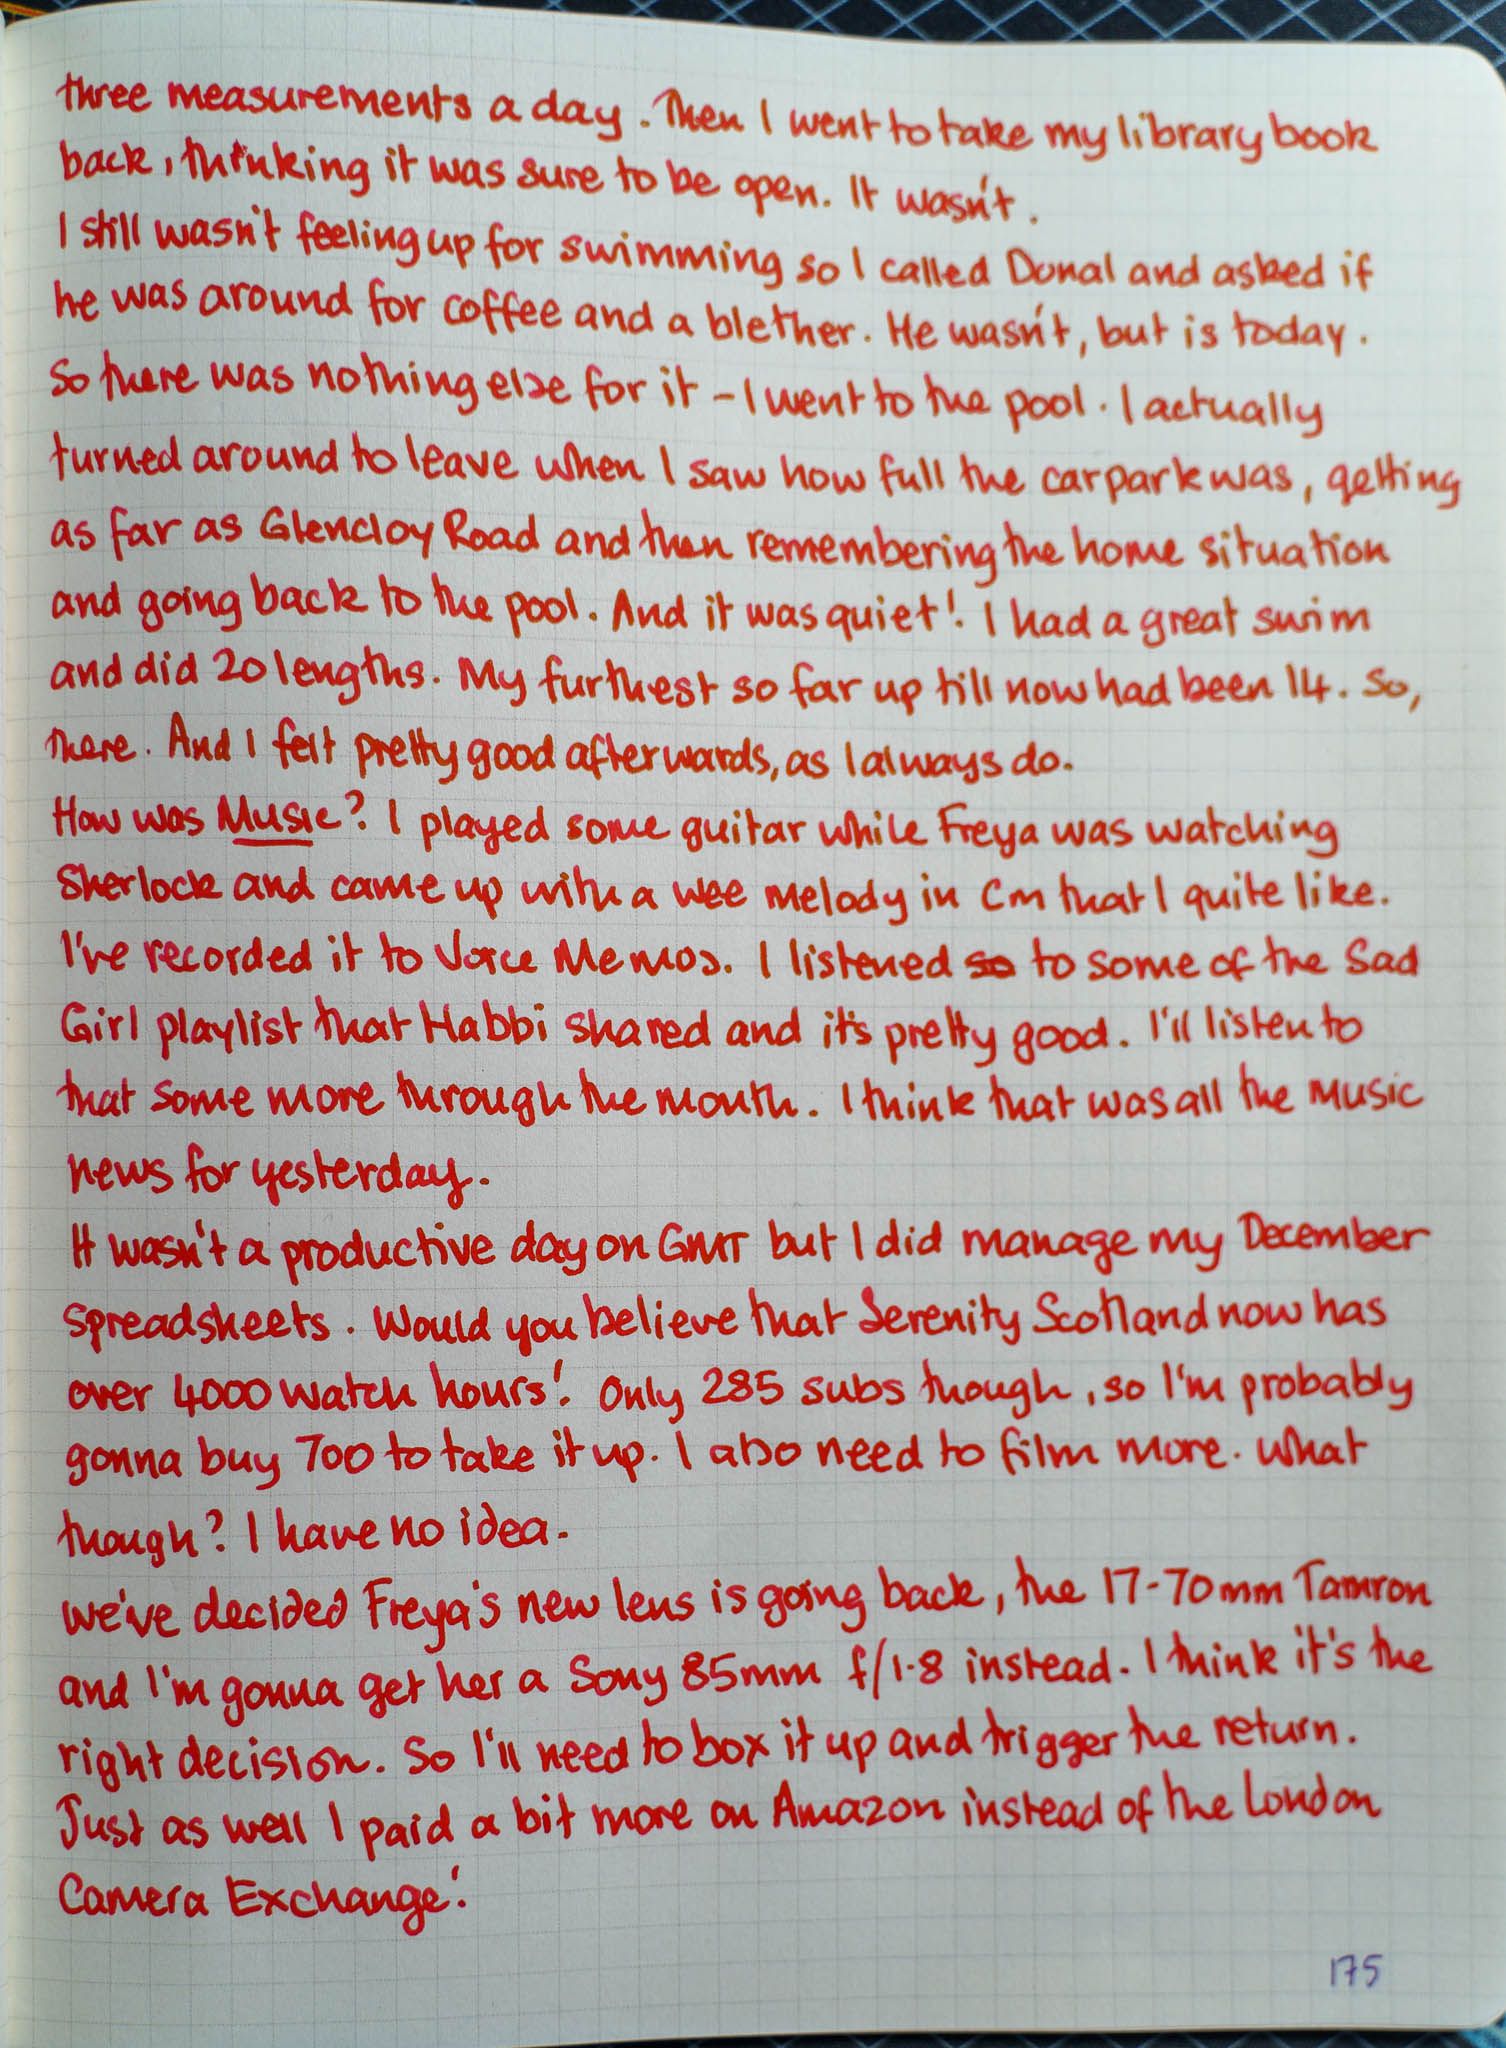 three measurements a day. Then I went to take my library book
back, thinking it was sure to be open. It wasn't.
I still wasn't feeling up for swimming so I called Donal and asked if
he was around for coffee and a blether. He wasn't, but is today.
So there was nothing else for it - I went to the pool. I actually
turned around to leave when I saw how full the carpark was, getting
as far as Glencloy Road and then remembering the home situation
and going back to the pool. And it was quiet! I had a great swim
and did 20 lengths. My furthest so far up till now had been 14. So,
there. And I felt pretty good afterwards, as I always do.
How was Music? I played some guitar while Freya was watching
Sherlock and came up with a wee melody in Cm that I quite like.
I've recorded it to Voice Memos. I listened so to some of the Sad
Girl playlist that Habbi shared and it's pretty good. I'll listen to
that some more through the month. I think that was all the Music
news for yesterday.
It wasn't a productive day on GMT but I did manage my December
spreadsheets. Would you believe that Serenity Scotland now has
over 4000 watch hours! Only 285 subs though, so I'm probably
gonna buy 700 to take it up. I also need to film more. What
though? I have no idea.
We've decided Freya's new lens is going back, the 17-70mm Tamron
and I'm gonna get her a Sony 85mm f/1.8 instead. I think it's the
right decision. So I'll need to box it up and trigger the return.
Just as well I paid a bit more on Amazon instead of the London
Camera Exchange!
175